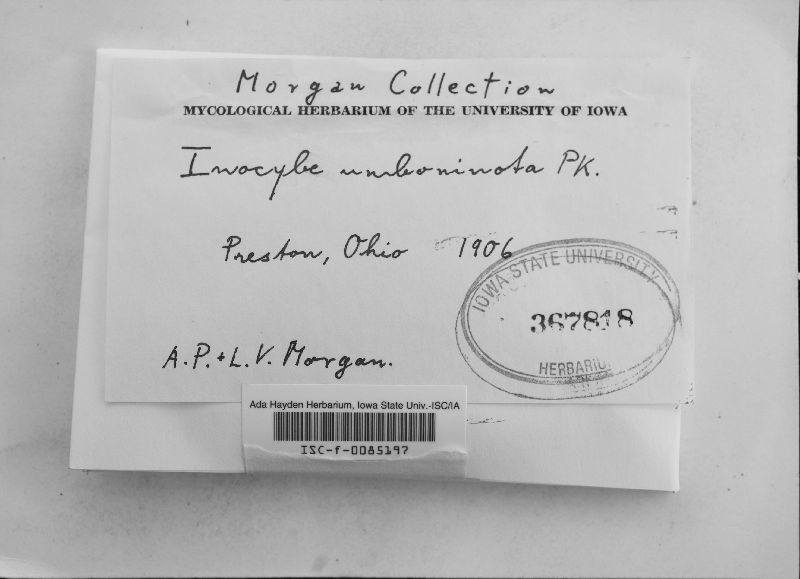 Morgan Collection
MYCOLOGICAL HERBARIUM OF THE UNIVERSITY OF IOWA
Inocybe umboninota PK.
Preston, Ohio 1906
IOWA STATE UNIVERSITY
367818
HERBARIUM
A.P. + L.V. Morgan.
Ada Hayden Herbarium, Iowa State Univ.-ISC/IA
ISC-f-0085197